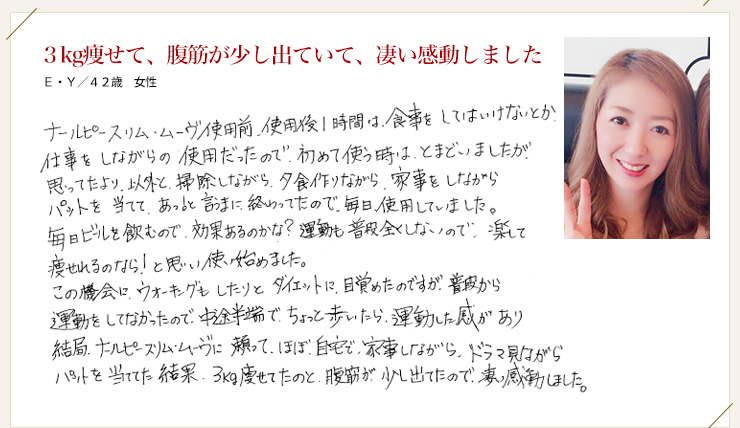 ３kg痩せて、腹筋が少し出ていて、凄い感動しました
Ｅ・Ｙ／４２歳　女性
ナールピースリム・ムーヴ使用前、使用後1時間は、食事をしてはいけないとか、
仕事をしながらの使用だったので、初めて使う時は、とまどいましたが
思ってたより、以外と、掃除しながら、夕食作りながら、家事をしながら
パットを当てて、あっと言う間に終わってたので、毎日使用していました。
毎日ビールを飲むので、効果あるのかな?運動も普段全くしないので、楽して
痩せれるのなら!と思い使い始めました。
この機会に、ウォーキングもしたりとダイエットに、目覚めたのですが、普段から
運動をしてなかったので、中途半端で、ちょっと歩いたら、運動した感があり
結局、ナールピースリム・ムーヴに頼って、ほぼ、自宅で、家事しながら、ドラマ見ながら
パットを当ててた結果、3kg痩せてたのと、腹筋が、少し出てたので、凄い感動しました。